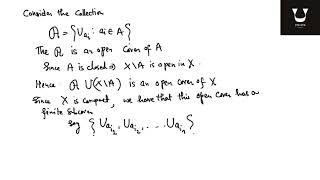 Consider the Collection
𝒜 = {U_{a_i} : a_i ∈ A}
The 𝒜 is an open Cover of A.
Since A is closed ⇒ X\A is open in X.
Hence 𝒜 ∪ (X\A) is an open cover of X
Since X is compact, we have that this open Cover has a
finite Subcover
Say {U_{a_{i_1}}, U_{a_{i_2}}, .... U_{a_{i_n}}}